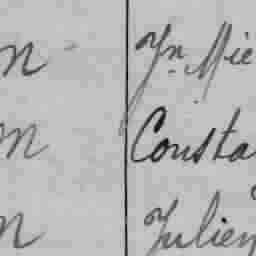 m Jn. Mie
m Consta
m Julien